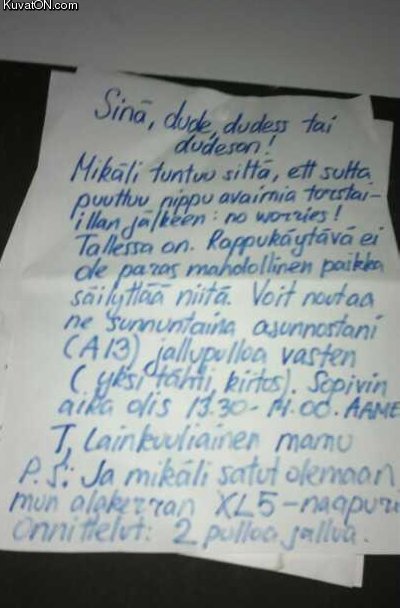 KuvatON.com
Sinä, dude, dudess tai
dudeson!
Mikäli tuntuu siltä, ett sulta
puuttuu nippu avaimia torstai-
illan jälkeen: no worries!
Tallessa on. Rappukäytävä ei
ole paras mahdollinen paikka
säilyttää niitä. Voit noutaa
ne sunnuntaina asunnostani
(A13) jallupulloa vasten
(yksi tähti, kiitos). Sopivin
aika olis 13.30-14.00. AAMEN
T, Lainkuuliainen mamu
P.S: Ja mikäli satut olemaan
mun alakerran XL5-naapuri
Onnittelut: 2 pulloa jallua.